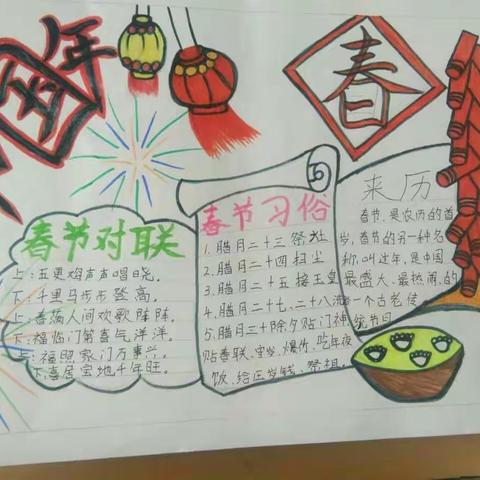 年
春
春节对联
上:五更鸡声声唱晓,
下:千里马步步登高。
上:春满人间欢歌阵阵,
下:福临门第喜气洋洋。
上:福照家门万事兴,
下:喜居宝地千年旺。
春节习俗
1.腊月二十三祭灶
2.腊月二十四扫尘
3.腊月二十五接玉皇
4.腊月二十七、二十八洗
5.腊月三十除夕贴门神
贴春联、守岁、爆竹、吃年夜
饭、给压岁钱、祭祖。
来历
春节,是农历的首
岁,春节的另一种名
称,叫过年,是中国
最盛大、最热闹,的
一个古老传
统节日